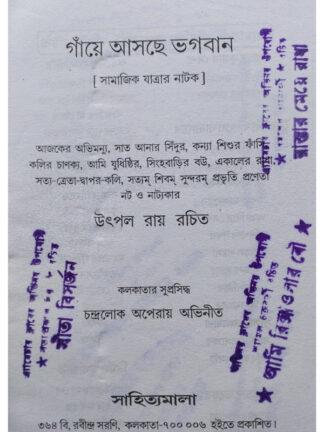 গাঁয়ে আসছে ভগবান
[ সামাজিক যাত্রার নাটক ]
আজকের অভিমন্যু, সাত আনার সিঁদুর, কন্যা শিশুর ফাঁসি
কলির চাণক্য, আমি যুধিষ্ঠির, সিংহবাড়ির বউ, একালের
সত্য-ত্রেতা-দ্বাপর-কলি, সত্যম্ শিবম্ সুন্দরম্ প্রভৃতি প্রণেতা
নট ও নাট্যকার
উৎপল রায় রচিত
কলকাতার সুপ্রসিদ্ধ
চন্দ্রলোক অপেরায় অভিনীত
সাহিত্যমালা
৩৬৪ বি, রবীন্দ্র সরণি, কলকাতা-৭০০ ০০৬ হইতে প্রকাশিত।
রাস্তার মেয়ে রাধা
সীতা বিসর্জন
★ আমি রিক্সাওলার বৌ ★